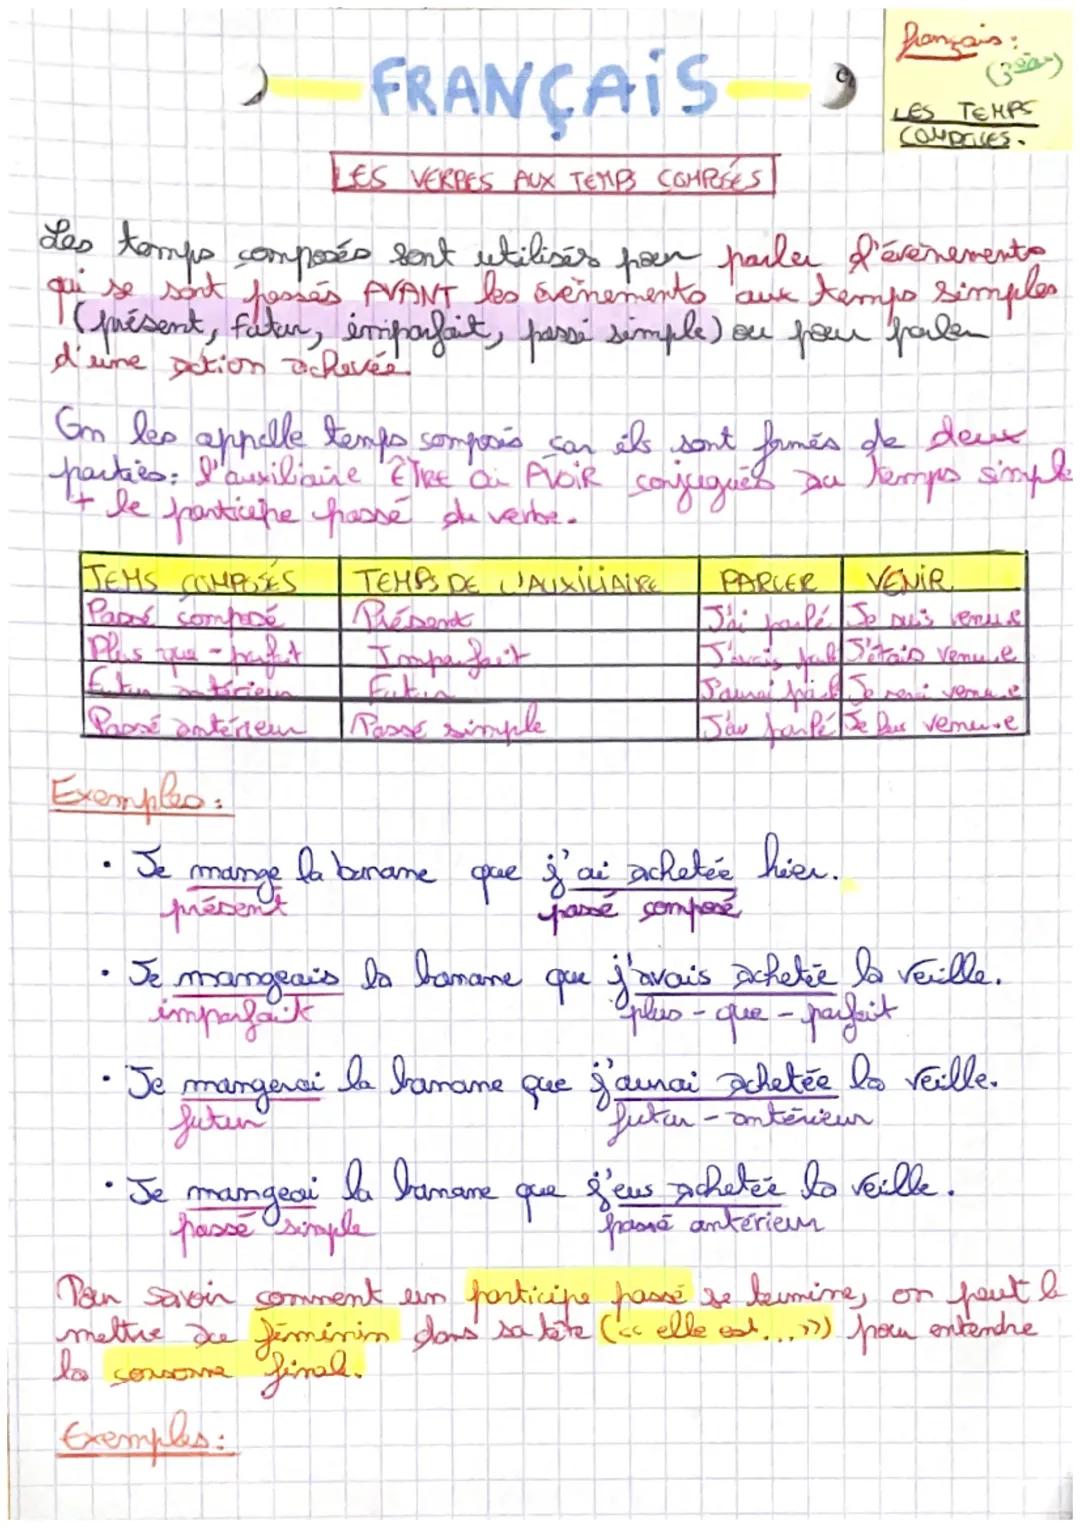 FRANÇAIS
français :
(3ème)
LES TEMPS
COMPOSÉS.
LES VERBES AUX TEMPS COMPOSÉS
Les temps composés sont utilisés pour parler d'évènements
qui se sont passés AVANT les évènements aux temps simples
(présent, futur, imparfait, passé simple) ou pour parler
d'une action achevée.
On les appelle temps composés car ils sont formés de deux
parties : l'auxiliaire ÊTRE ou AVOIR conjugués au temps simple
+ le participe passé du verbe.
TEMS COMPOSÉS TEMPS DE L'AUXILIAIRE PARLER VENIR
Passé composé Présent J'ai parlé Je suis venu.e
Plus que-parfait Imparfait J'avais parlé J'étais venu.e
Futur antérieur Futur J'aurai parlé Je serai venu.e
Passé antérieur Passé simple J'eu parlé Je fus venu.e
Exemples :
• Je mange la banane que j'ai achetée hier.
présent passé composé
• Je mangeais la banane que j'avais achetée la veille.
imparfait plus-que-parfait
• Je mangerai la banane que j'aurai achetée la veille.
futur futur-antérieur
• Je mangeai la banane que j'eus achetée la veille.
passé simple passé antérieur
Pour savoir comment un participe passé se termine, on peut le
mettre au féminin dans sa tête (« elle est... ») pour entendre
la consonne finale.
Exemples :